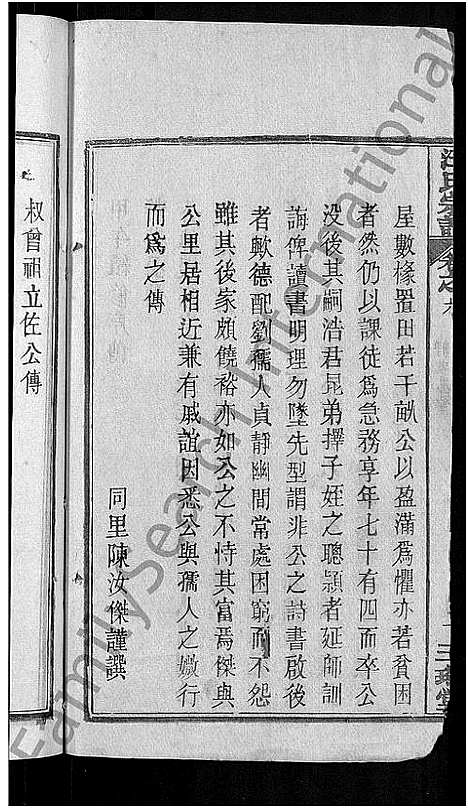 屋數椽置田若干畝公以盈滿爲懼亦若貧困
者然仍以課徒爲急務享年七十有四而卒公
没後其嗣浩君昆弟擇子姪之聰頴者延師訓
誨俾讀書明理勿墜先型謂非公之詩書啟後
者歟德配劉孺人貞靜幽閒常處困窮而不怨
雖其後家頗饒裕亦如公之不恃其富焉傑與
公里居相近兼有戚誼因悉公與孺人之媺行
而爲之傳
同里陳汝傑謹譔
叔曾祖立佐公傳
FamilySearch International